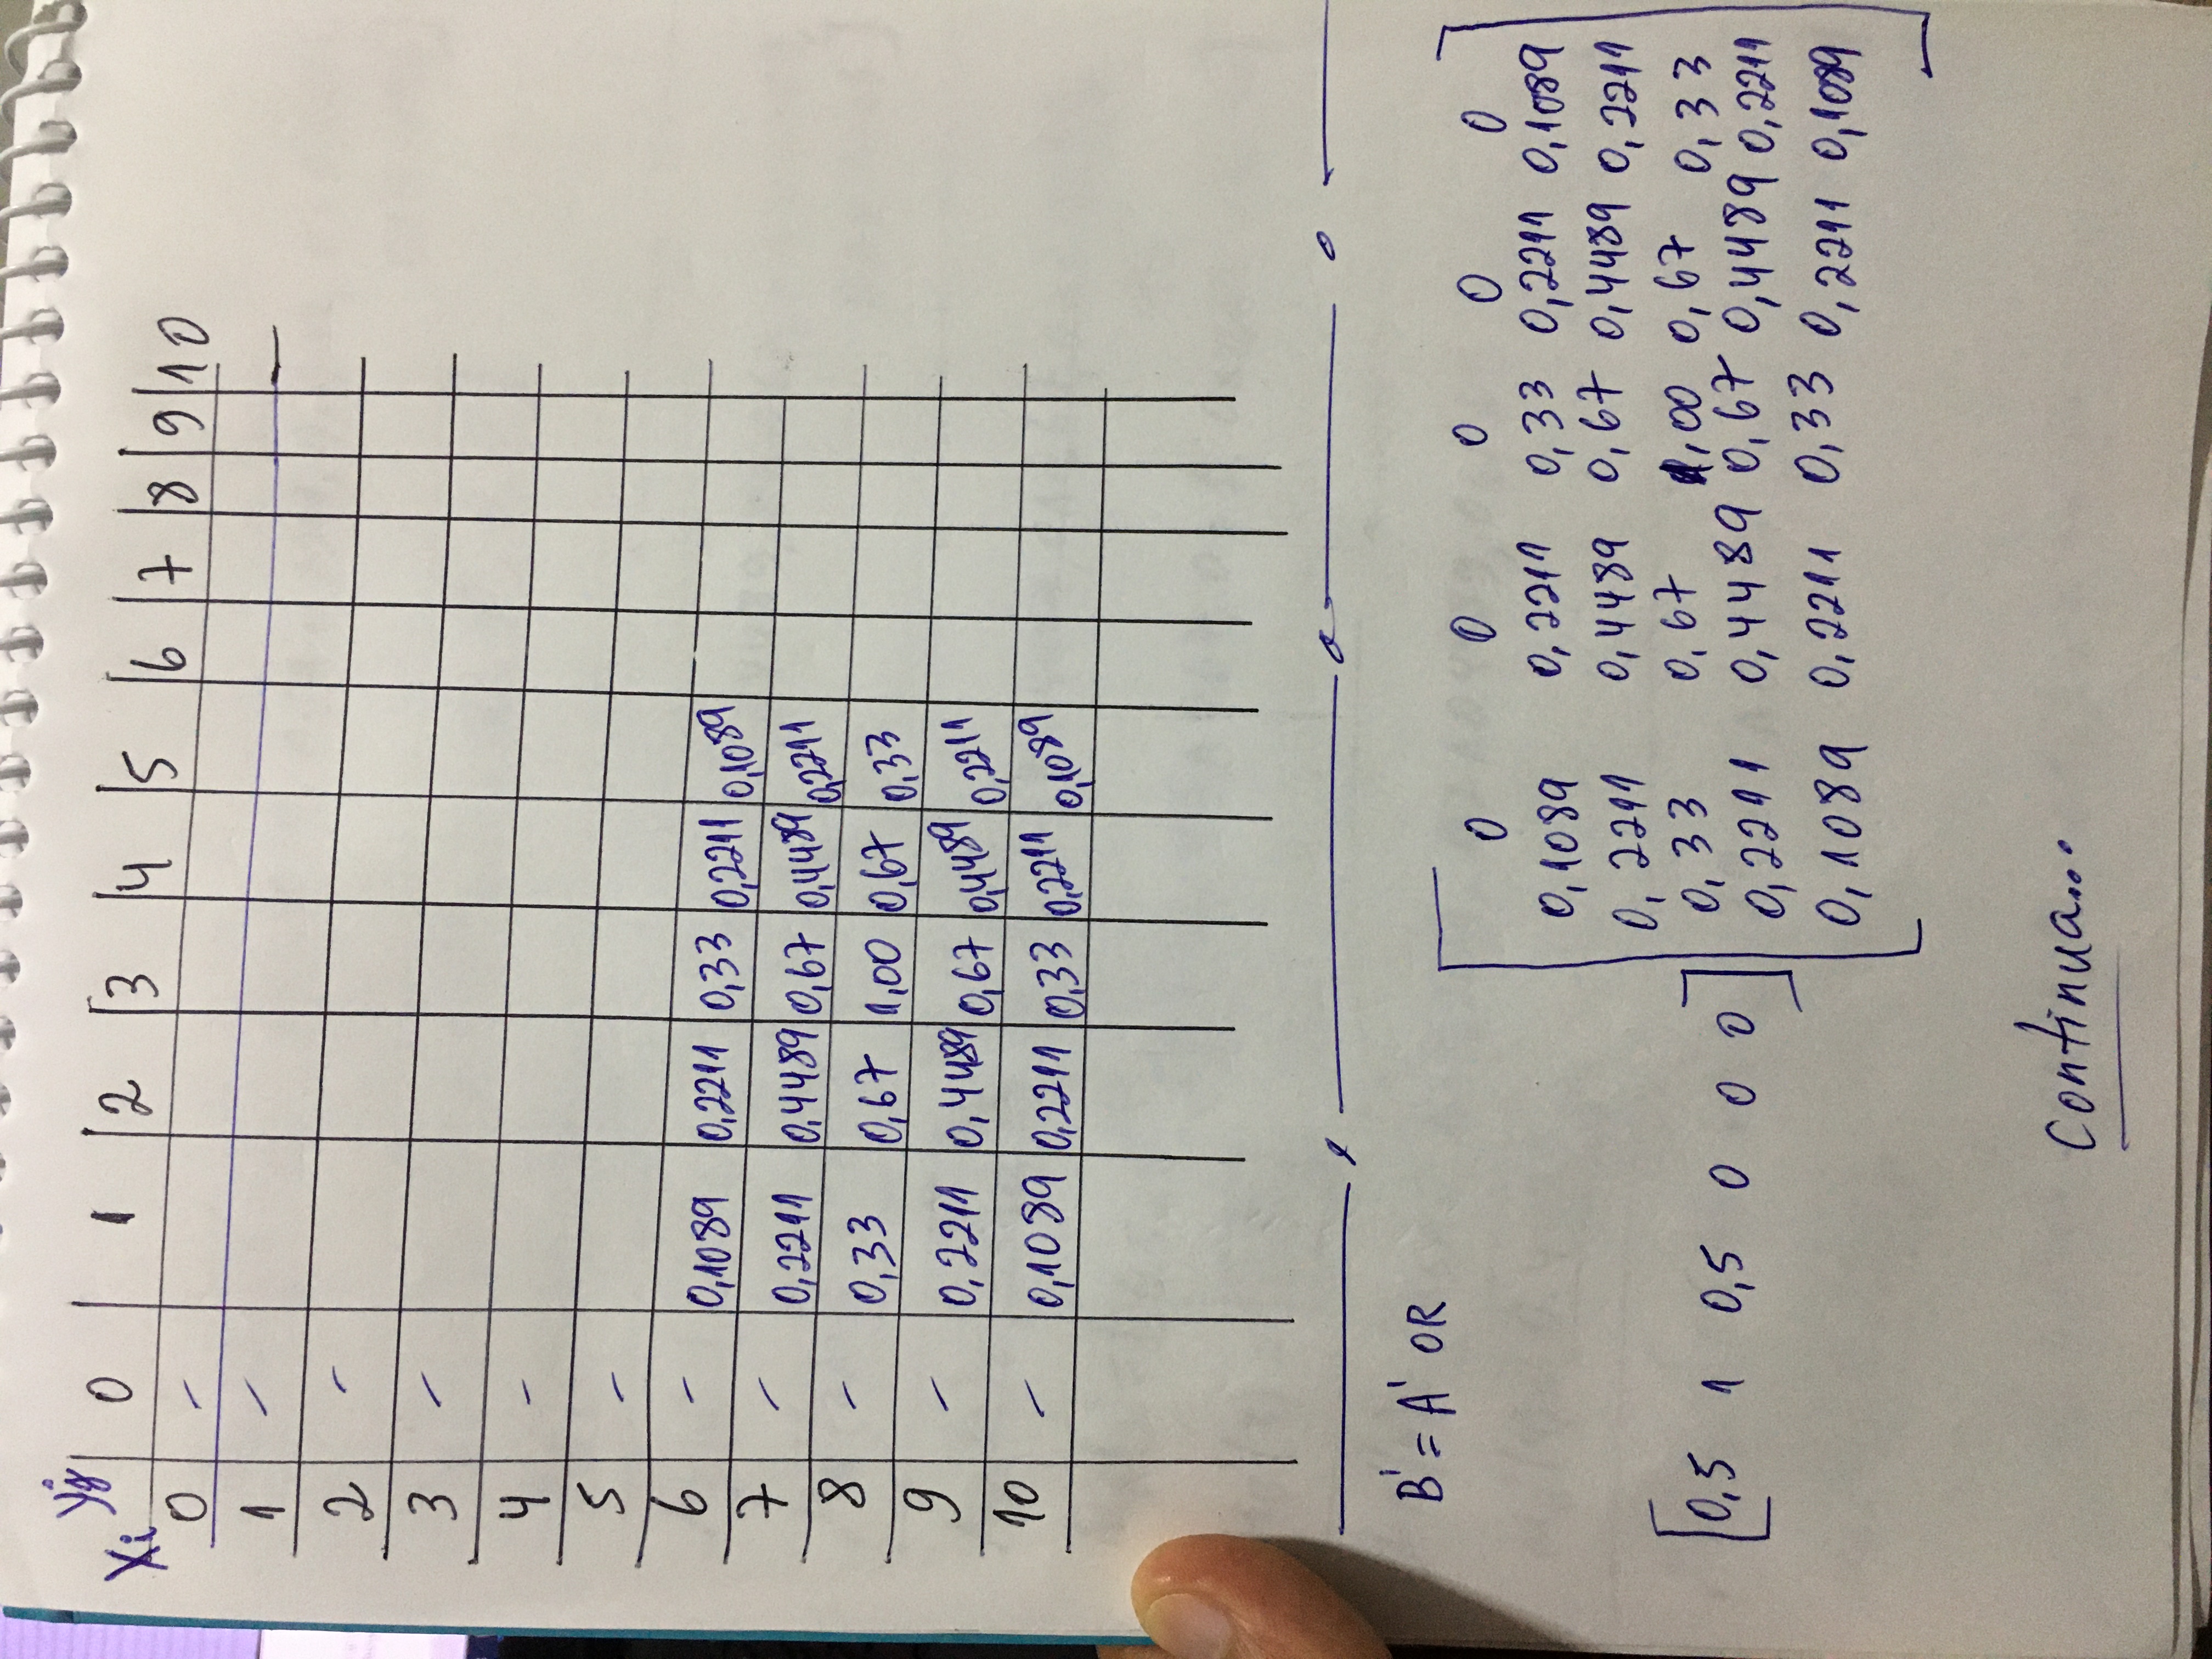 Xi Yj 0 1 2 3 4 5 6 7 8 9 10
0 -
1 -
2 -
3 -
4 -
5 -
6 - 0,1089 0,2211 0,33 0,2211 0,1089
7 - 0,2211 0,4489 0,67 0,4489 0,2211
8 - 0,33 0,67 1,00 0,67 0,33
9 - 0,2211 0,4489 0,67 0,4489 0,2211
10 - 0,1089 0,2211 0,33 0,2211 0,1089
B' = A' OR
[0,5 1 0,5 0 0 0]
0 0 0 0 0
0,1089 0,2211 0,33 0,2211 0,1089
0,2211 0,4489 0,67 0,4489 0,2211
0,33 0,67 1,00 0,67 0,33
0,2211 0,4489 0,67 0,4489 0,2211
0,1089 0,2211 0,33 0,2211 0,1089
Continua...